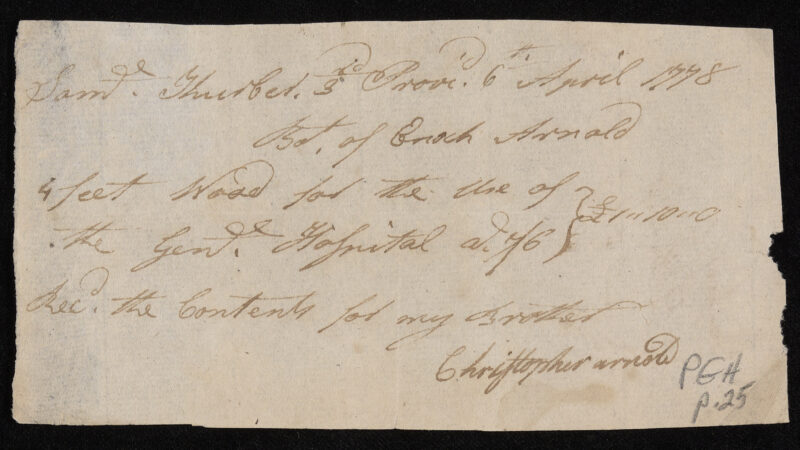 Saml. Thurber. 3d Provid. 6th April 1778
Bot. of Enoch Arnold
4 feet Wood for the Use of
the Genl. Hospital at 7/6 } £1 " 10 " 0
Recd. the Contents for my Brother
Christopher arnold
PGH
p.25